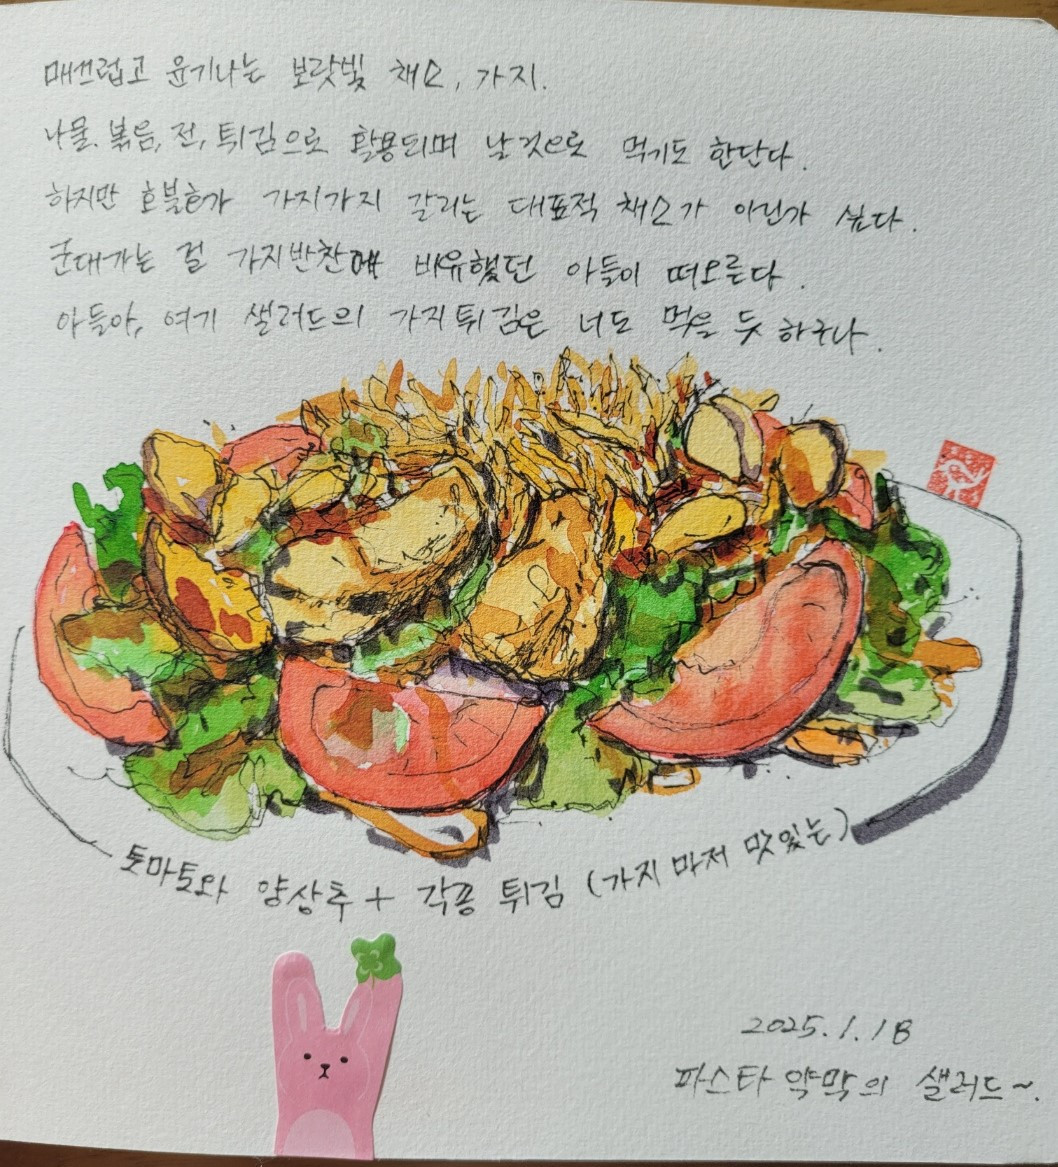 매끄럽고 윤기나는 보랏빛 채소, 가지.
나물, 볶음, 전, 튀김으로 활용되며 날것으로 먹기도 한단다.
하지만 호불호가 가지가지 갈리는 대표적 채소가 아닌가 싶다.
군대가는 걸 가지반찬에 비유했던 아들이 떠오른다.
아들아, 여기 샐러드의 가지튀김은 너도 먹을 듯 하구나.
토마토와 양상추 + 각종 튀김 (가지마저 맛있는)
2025.1.18
파스타 약막의 샐러드~.